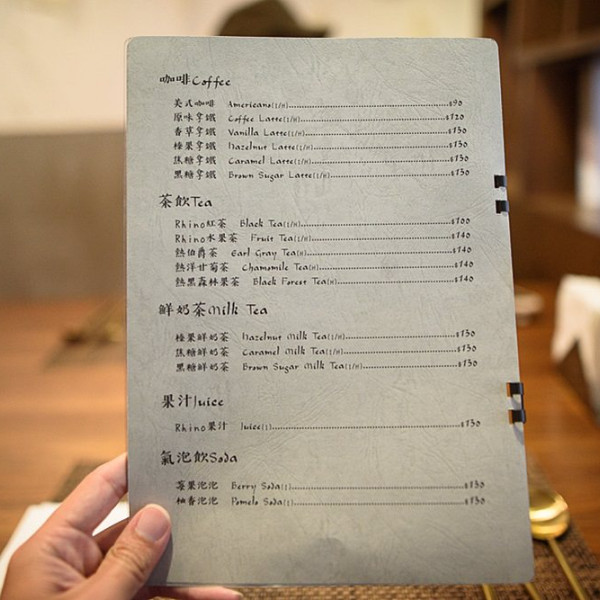 咖啡Coffee
美式咖啡 Americano(I/H) $90
原味拿鐵 Coffee Latte(I/H) $120
香草拿鐵 Vanilla Latte(I/H) $130
榛果拿鐵 Hazelnut Latte(I/H) $130
焦糖拿鐵 Caramel Latte(I/H) $130
黑糖拿鐵 Brown Sugar Latte(I/H) $130
茶飲Tea
Rhino紅茶 Black Tea(I/H) $100
Rhino水果茶 Fruit Tea(I/H) $140
熱伯爵茶 Earl Gray Tea(H) $140
熱洋甘菊茶 Chamomile Tea(H) $140
熱黑森林果茶 Black Forest Tea(H) $140
鮮奶茶Milk Tea
榛果鮮奶茶 Hazelnut Milk Tea(I/H) $130
焦糖鮮奶茶 Caramel Milk Tea(I/H) $130
黑糖鮮奶茶 Brown Sugar Milk Tea(I/H) $130
果汁Juice
Rhino果汁 Juice(I) $130
氣泡飲Soda
莓果泡泡 Berry Soda(I) $130
柚香泡泡 Pomelo Soda(I) $130